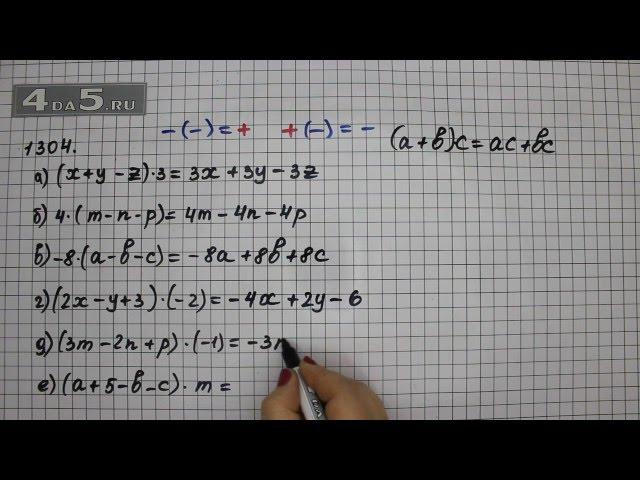 4DA5.RU
-(-)=+ +(-)=-
(a+b)c=ac+bc
1304.
а) (x+y-z)·3=3x+3y-3z
б) 4·(m-n-p)=4m-4n-4p
в) -8·(a-b-c)=-8a+8b+8c
г) (2x-y+3)·(-2)=-4x+2y-6
д) (3m-2n+p)·(-1)=-3m
е) (a+5-b-c)·m=